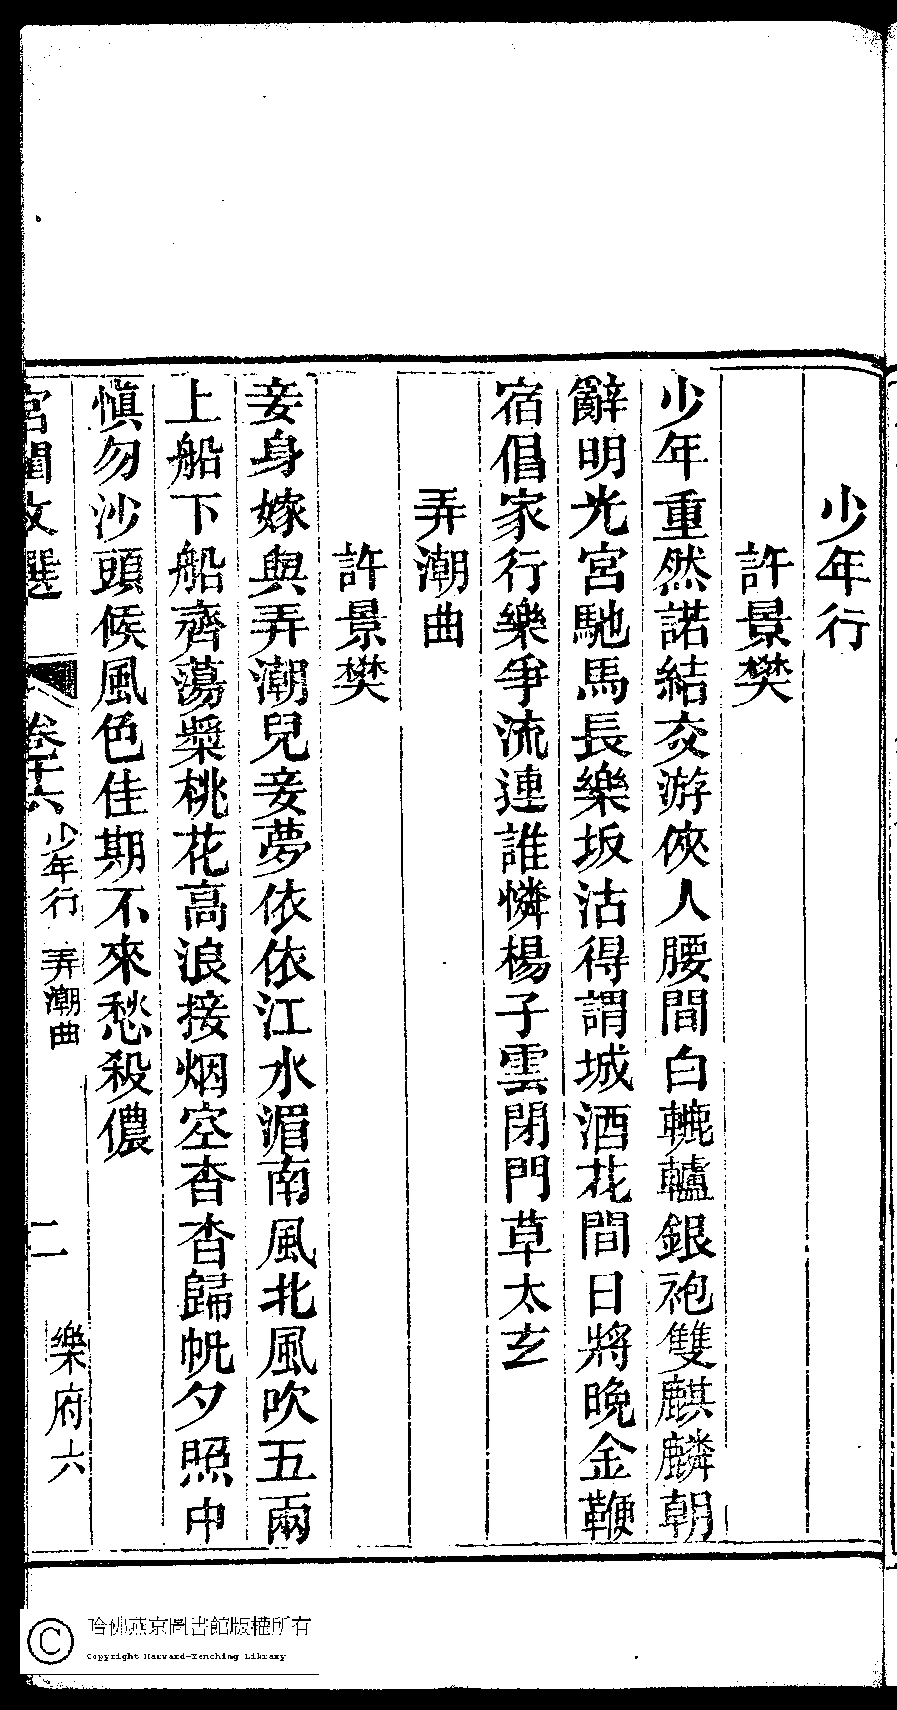 少年行
許景樊
少年重然諾結交游俠人腰間白轆轤銀袍雙麒麟朝
辭明光宮馳馬長樂坂沽得謂城酒花間日將晚金鞭
宿倡家行樂爭流連誰憐楊子雲閉門草太玄
弄潮曲
許景樊
妾身嫁與弄潮兒妾夢依依江水湄南風北風吹五兩
上船下船齊蕩槳桃花高浪接烟空杳杳歸帆夕照中
慎勿沙頭候風色佳期不來愁殺儂
宮閨文選 卷二十六 少年行 弄潮曲 二 樂府六
哈佛燕京圖書館版權所有
Copyright Harvard-Yenching Library